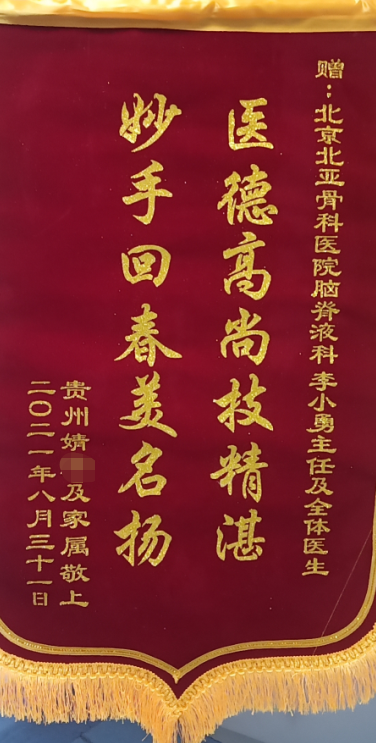 赠：北京北亚骨科医院脑脊液科 李小勇主任及全体医生
医德高尚技精湛
妙手回春美名扬
贵州婧及家属敬上
二〇二一年八月三十一日